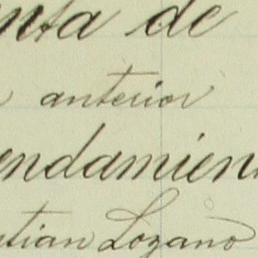 nta de
anterior
endamien
tian Lozano